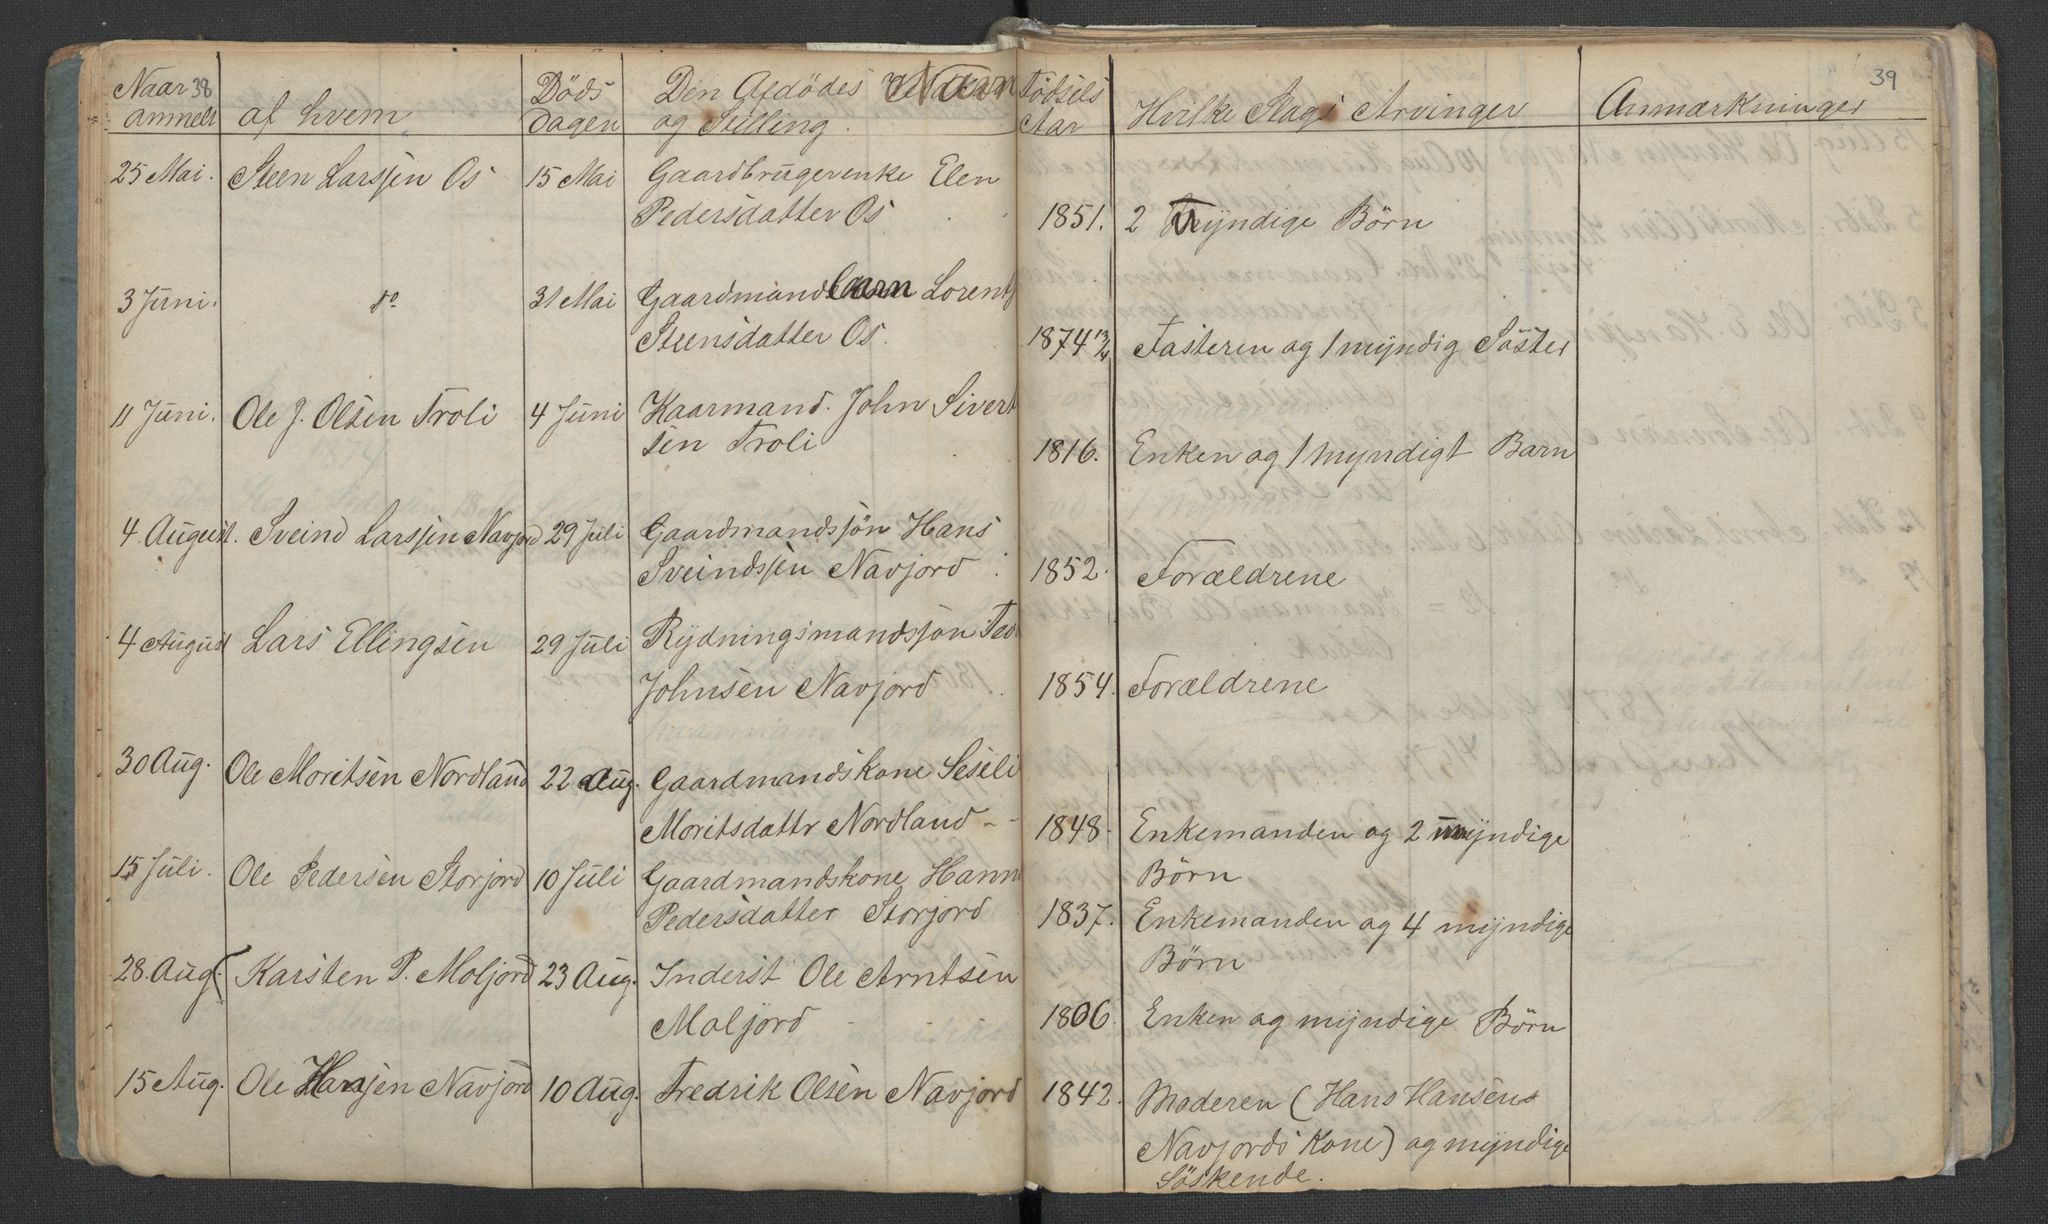 38
Naar
anmeldt
af hvem
Döds
dagen
Den Afdödes Navn
og Stilling.
25 Mai.
Steen Larssen Os
15 Mai
Gaardbrugerenke Elen
Pedersdatter Os
3 Juni.
do
31 Mai
Gaardmandsbarn Lorents
Steensdatter Os.
11 Juni.
Ole J. Olsen Troli
4 Juni
Kaarmand. John Sivert
sen Troli
4 August.
Sveind Larssen Navjord
29 Juli
Gaardmandssön Hans
Sveindssen Navjord
4 August
Lars Ellingsen
29 Juli
Rydningsmandssön
Johnsen Navjord
30 Aug.
Ole Moritsen Nordland
22 Aug.
Gaardmandskone Seseli
Moritsdattr Nordland - -
15 Juli.
Ole Pedersen Storjord
10 Juli
Gaardmandskone Hanna
Pedersdatter Storjord
28. Aug.
Karsten P. Moljord
23 Aug.
Inderst Ole Arntsen
Moljord
15 Aug.
Ole Hansen Navjord
10 Aug.
Fredrik Olsen Navjord
39
Födsels
Aar
Hvilke Slags Arvinger
Anmærkninger
1851.
2 Umyndige Börn
1874
Fasteren og 1 myndig Söster
1816.
Enken og 1 myndigt Barn
1852.
Forældrene
1854.
Forældrene
1848.
Enkemanden og 2 umyndige
Börn
1837.
Enkemanden og 4 myndige
Börn
1806.
Enken og myndige Börn
1842.
Moderen (Hans Hansens
Navjords Kone) og myndige
Söskende.